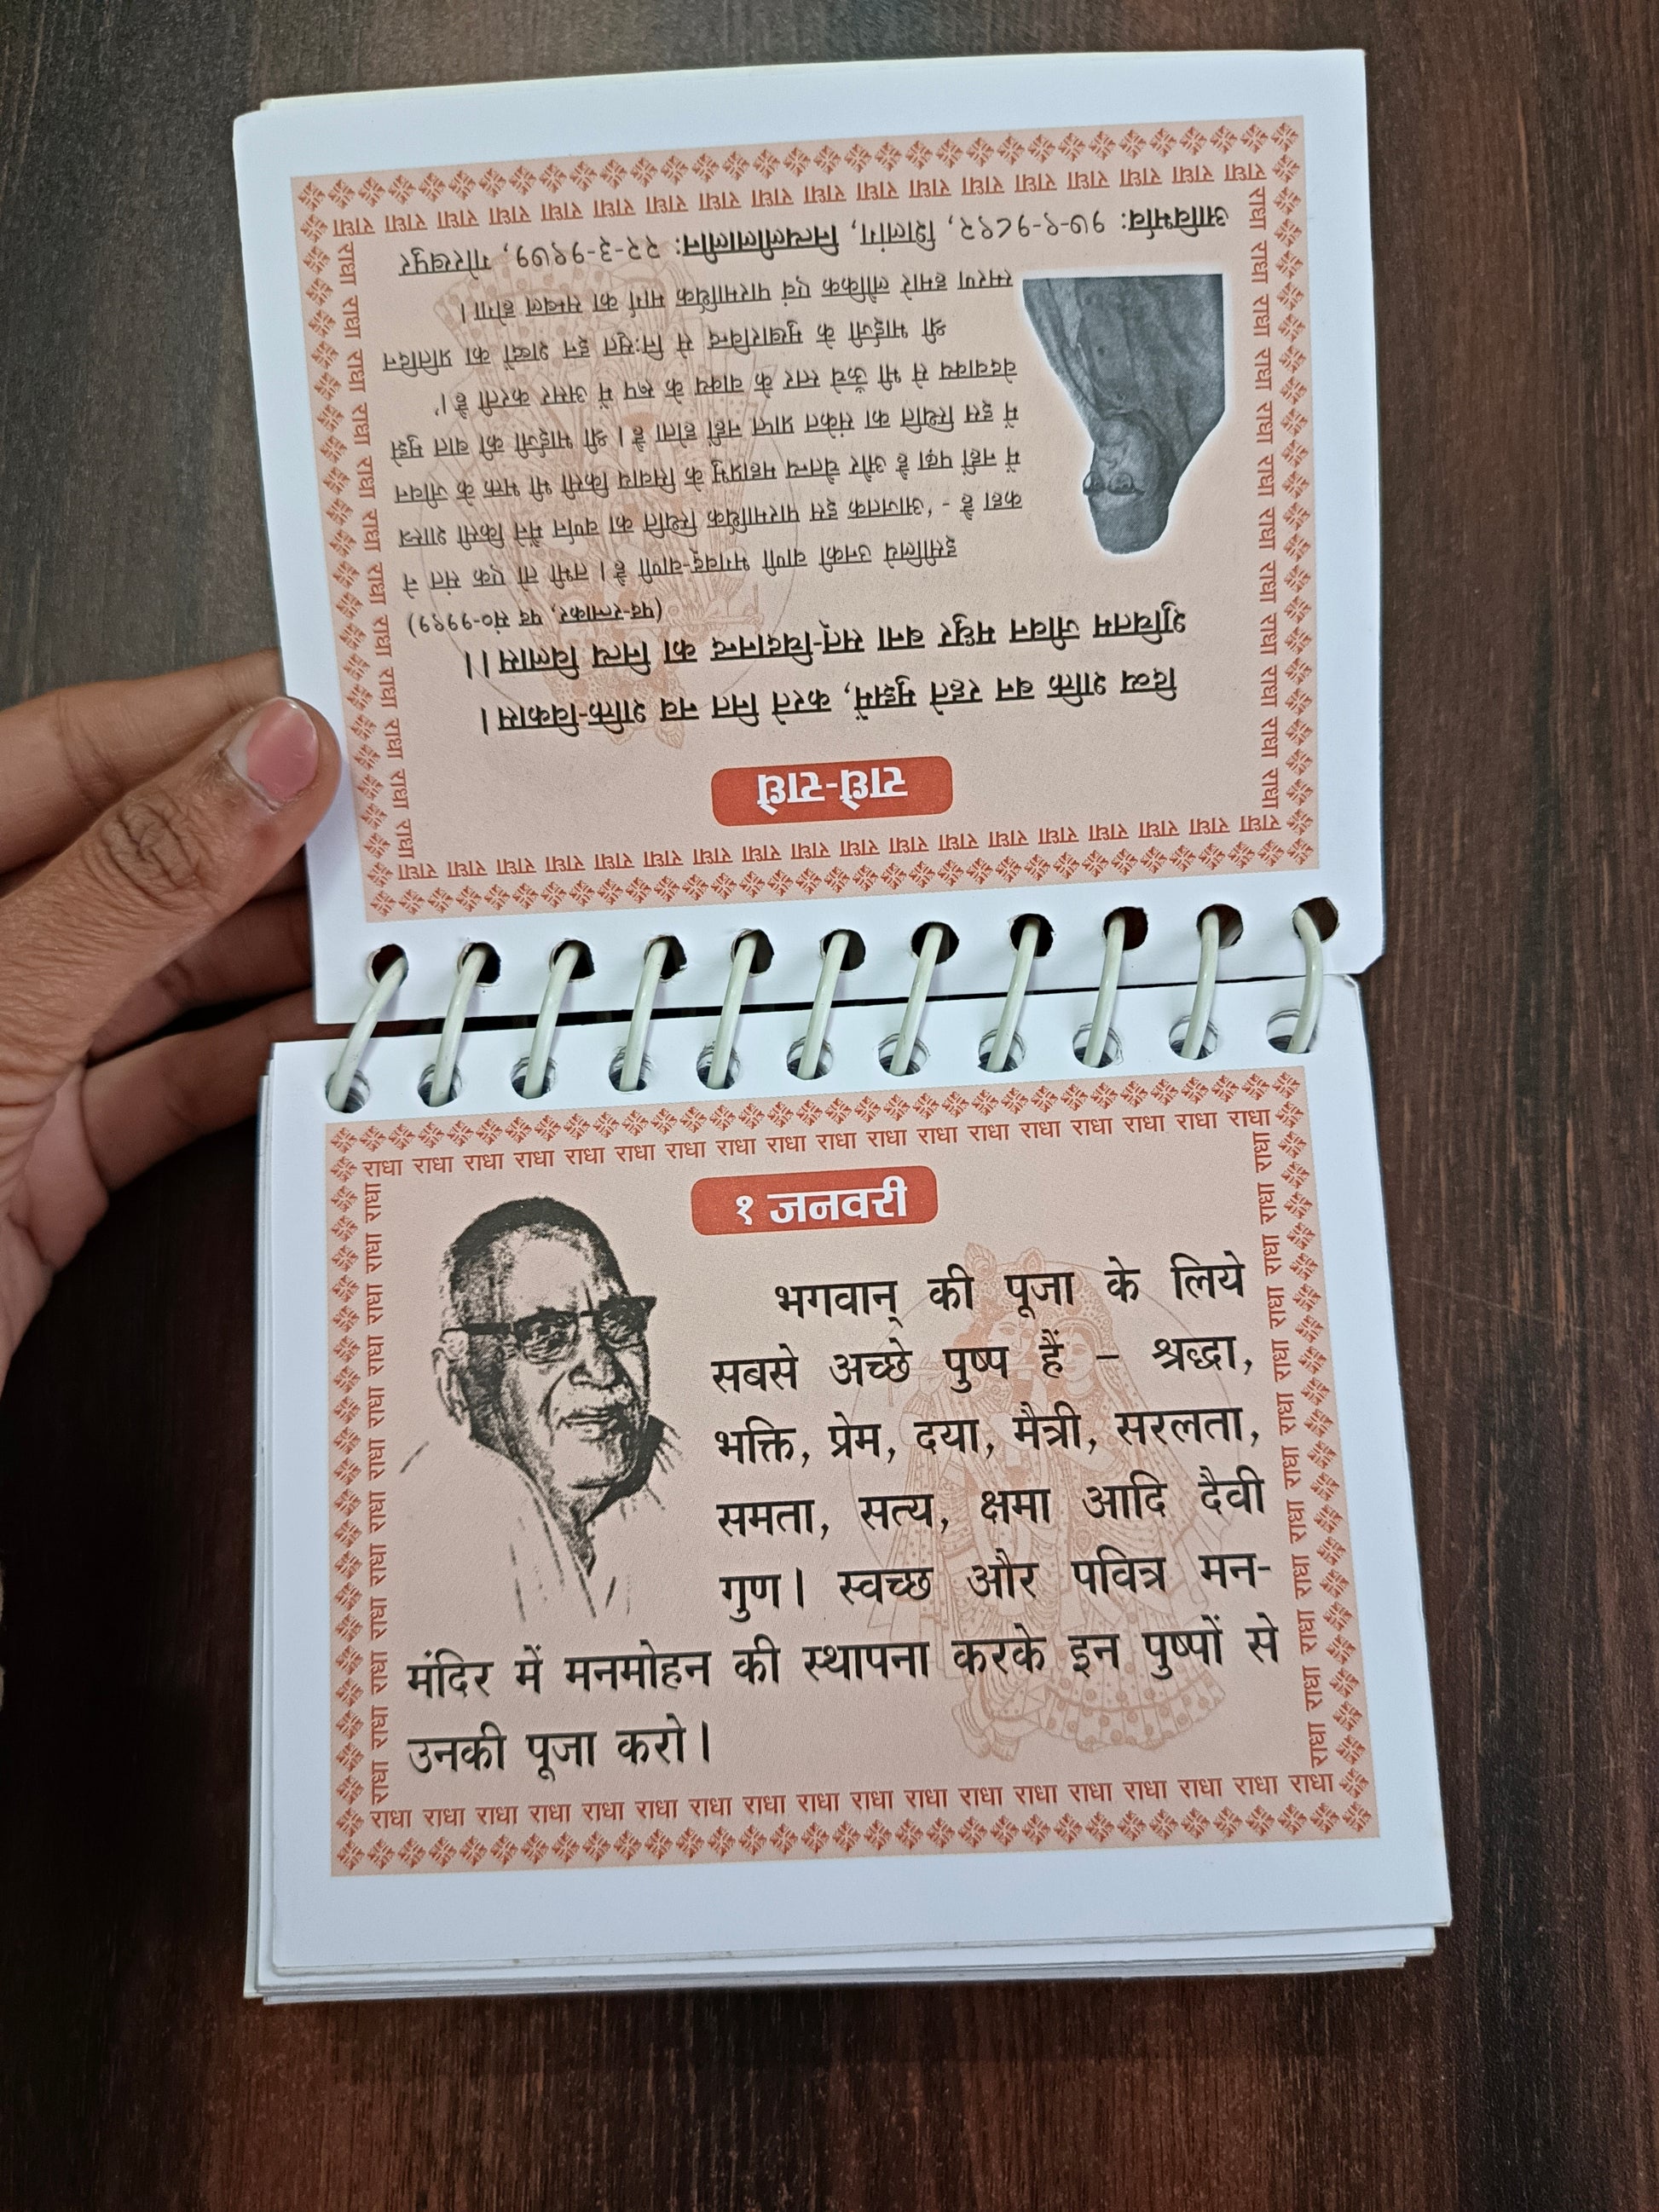 राधा राधा राधा राधा राधा राधा राधा राधा राधा राधा राधा राधा राधा राधा राधा राधा राधा राधा
राधे-राधे
दिव्य शक्ति बन रहते मुझमें, करते नित नव शक्ति-विकास।
शुचितम जीवन मधुर बना सत्-चिदानन्द का नित्य विलास।।
(पद-रत्नाकर, पद सं०-
इसीलिये उनकी वाणी भगवद्-वाणी है। तभी तो एक संत ने
कहा है - 'आजतक इस पारमार्थिक स्थिति का वर्णन मैंने किसी शास्त्र
में नहीं पढ़ा है और चैतन्य महाप्रभु के सिवाय किसी भी भक्त के जीवन
में इस स्थिति का संकेत प्राप्त नहीं होता है। श्री भाईजी की बात मुझे
वेदवाक्य से भी ऊँचे स्तर के वाक्य के रूप में असर करती है।'
श्री भाईजी के मुखारविन्द से निःसृत इन शब्दों का प्रतिदिन
स्मरण हमारे लौकिक एवं पारमार्थिक मार्ग का सम्बल होगा।
आविर्भाव: १७-९-१८९२, शिलांग, नित्यलीलालीन: २२-३-१९७१, गोरखपुर
राधा राधा राधा राधा राधा राधा राधा राधा राधा राधा राधा राधा राधा राधा राधा राधा राधा राधा
राधा राधा राधा राधा राधा राधा राधा राधा राधा राधा राधा राधा
राधा राधा राधा राधा राधा राधा राधा राधा राधा राधा राधा राधा
राधा राधा राधा राधा राधा राधा राधा राधा राधा राधा राधा राधा राधा राधा राधा राधा राधा राधा
१ जनवरी
भगवान् की पूजा के लिये
सबसे अच्छे पुष्प हैं – श्रद्धा,
भक्ति, प्रेम, दया, मैत्री, सरलता,
समता, सत्य, क्षमा आदि दैवी
गुण। स्वच्छ और पवित्र मन-
मंदिर में मनमोहन की स्थापना करके इन पुष्पों से
उनकी पूजा करो।
राधा राधा राधा राधा राधा राधा राधा राधा राधा राधा राधा राधा राधा राधा राधा राधा राधा राधा
राधा राधा राधा राधा राधा राधा राधा राधा राधा राधा राधा राधा
राधा राधा राधा राधा राधा राधा राधा राधा राधा राधा राधा राधा